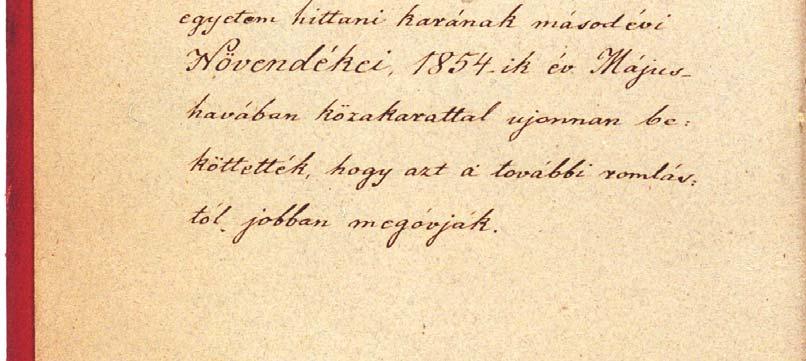 egyetem hittani karának másodévi
Növendékei, 1854-ik év Május-
havában közakarattal ujonnan be:
köttették, hogy azt a további romlás:
tól, jobban megóvják.